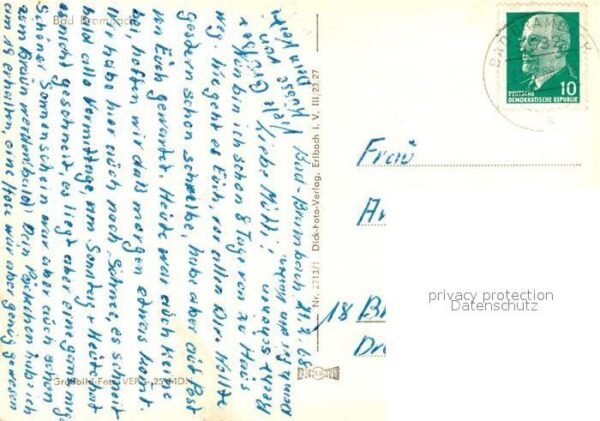 Bad Brambach
Bad-Brambach 21.2.68
Liebe Mutti!
Nun bin ich schon 8 Tage von zu Haus
weg. Wie geht es Euch, vor allen Dir. Wollte
gestern schon schreiben, habe aber auf Post
von Euch gewartet. Heute war auch keine
bei, hoffen wir daß morgen etwas kommt.
Wir haben hier auch noch Schnee, es schneit
bald alle Vormittage, am Sonntag + Heute hat
es nicht geschneit, es liegt aber eine ganze menge
Schnee. Sonnenschein war aber auch schon
zum Braun werden bald. Dein Päckchen habe ich
am 19. erhalten, eine Hose war aber genug gewesen
Großbild-Foto VEB
25 MDN
Nr. 2713/1 Dick-Foto-Verlag, Erlbach i. V. III/23/27
BAD BRAMBACH
DEUTSCHE
DEMOKRATISCHE REPUBLIK
10
Frau
18 B
privacy protection
Datenschutz